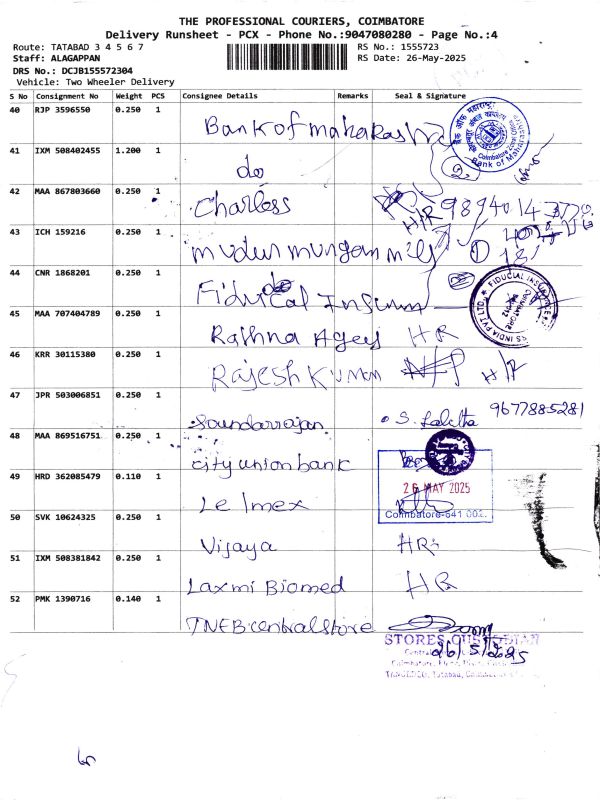 THE PROFESSIONAL COURIERS, COIMBATORE
Delivery Runsheet - PCX - Phone No.:9047080280 - Page No.:4
Route: TATABAD 3 4 5 6 7 RS No.: 1555723
Staff: ALAGAPPAN RS Date: 26-May-2025
DRS No.: DCJB155572304
Vehicle: Two Wheeler Delivery
S No Consignment No Weight PCS Consignee Details Remarks Seal & Signature
40 RJP 3596550 0.250 1
Bank of maharashtra
Bank of Maharashtra
41 IXM 508402455 1.200 1
do
42 MAA 867803660 0.250 1
Charless H/R
43 ICH 159216 0.250 1
44 CNR 1868201 0.250 1
FIDUCIAL
45 MAA 707404789 0.250 1
Rathna Agey HR
46 KRR 30115380 0.250 1
Rajesh Kumar H/R
47 JPR 503006851 0.250 1
Soundarrajan S. Lalitha 9677885281
48 MAA 869516751 0.250 1
city union bank
49 HRD 362085479 0.110 1
26 MAY 2025
Coimbatore-641 002.
Le Imex
50 SVK 10624325 0.250 1
Vijaya HR
51 IXM 508381842 0.250 1
Laxmi Biomed HR
52 PMK 1390716 0.140 1
TNEB central store
STORES CUSTODIAN
26/5/2025